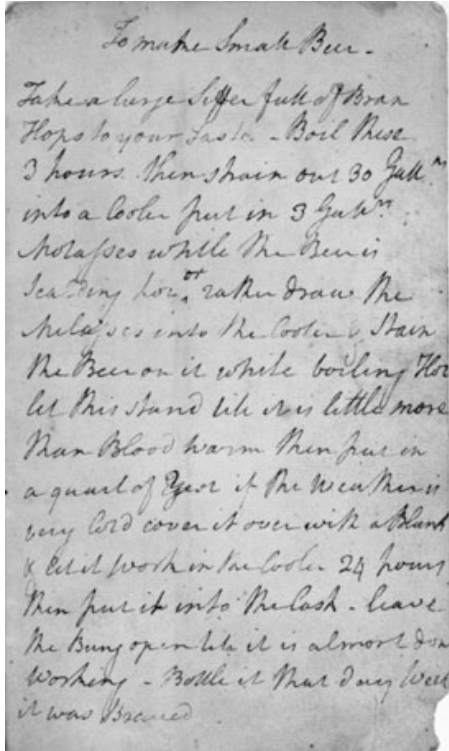 To make Small Beer -
Take a large Siffer full of Bran
Hops to your Taste - Boil these
3 hours. then strain out 30 Galln.
into a Cooler put in 3 Galln.
Molasses while the Beer is
Scalding hot or rather draw the
Molasses into the Cooler & Strain
the Beer on it while boiling Hot
let this stand till it is little more
than Blood warm then put in
a quart of Yest if the weather is
very Cold cover it over with a Blank
& let it work in the Cooler 24 hours
then put it into the Cask - leave
the Bung open till it is almost don
working - Bottle it that day Week
it was Brewed